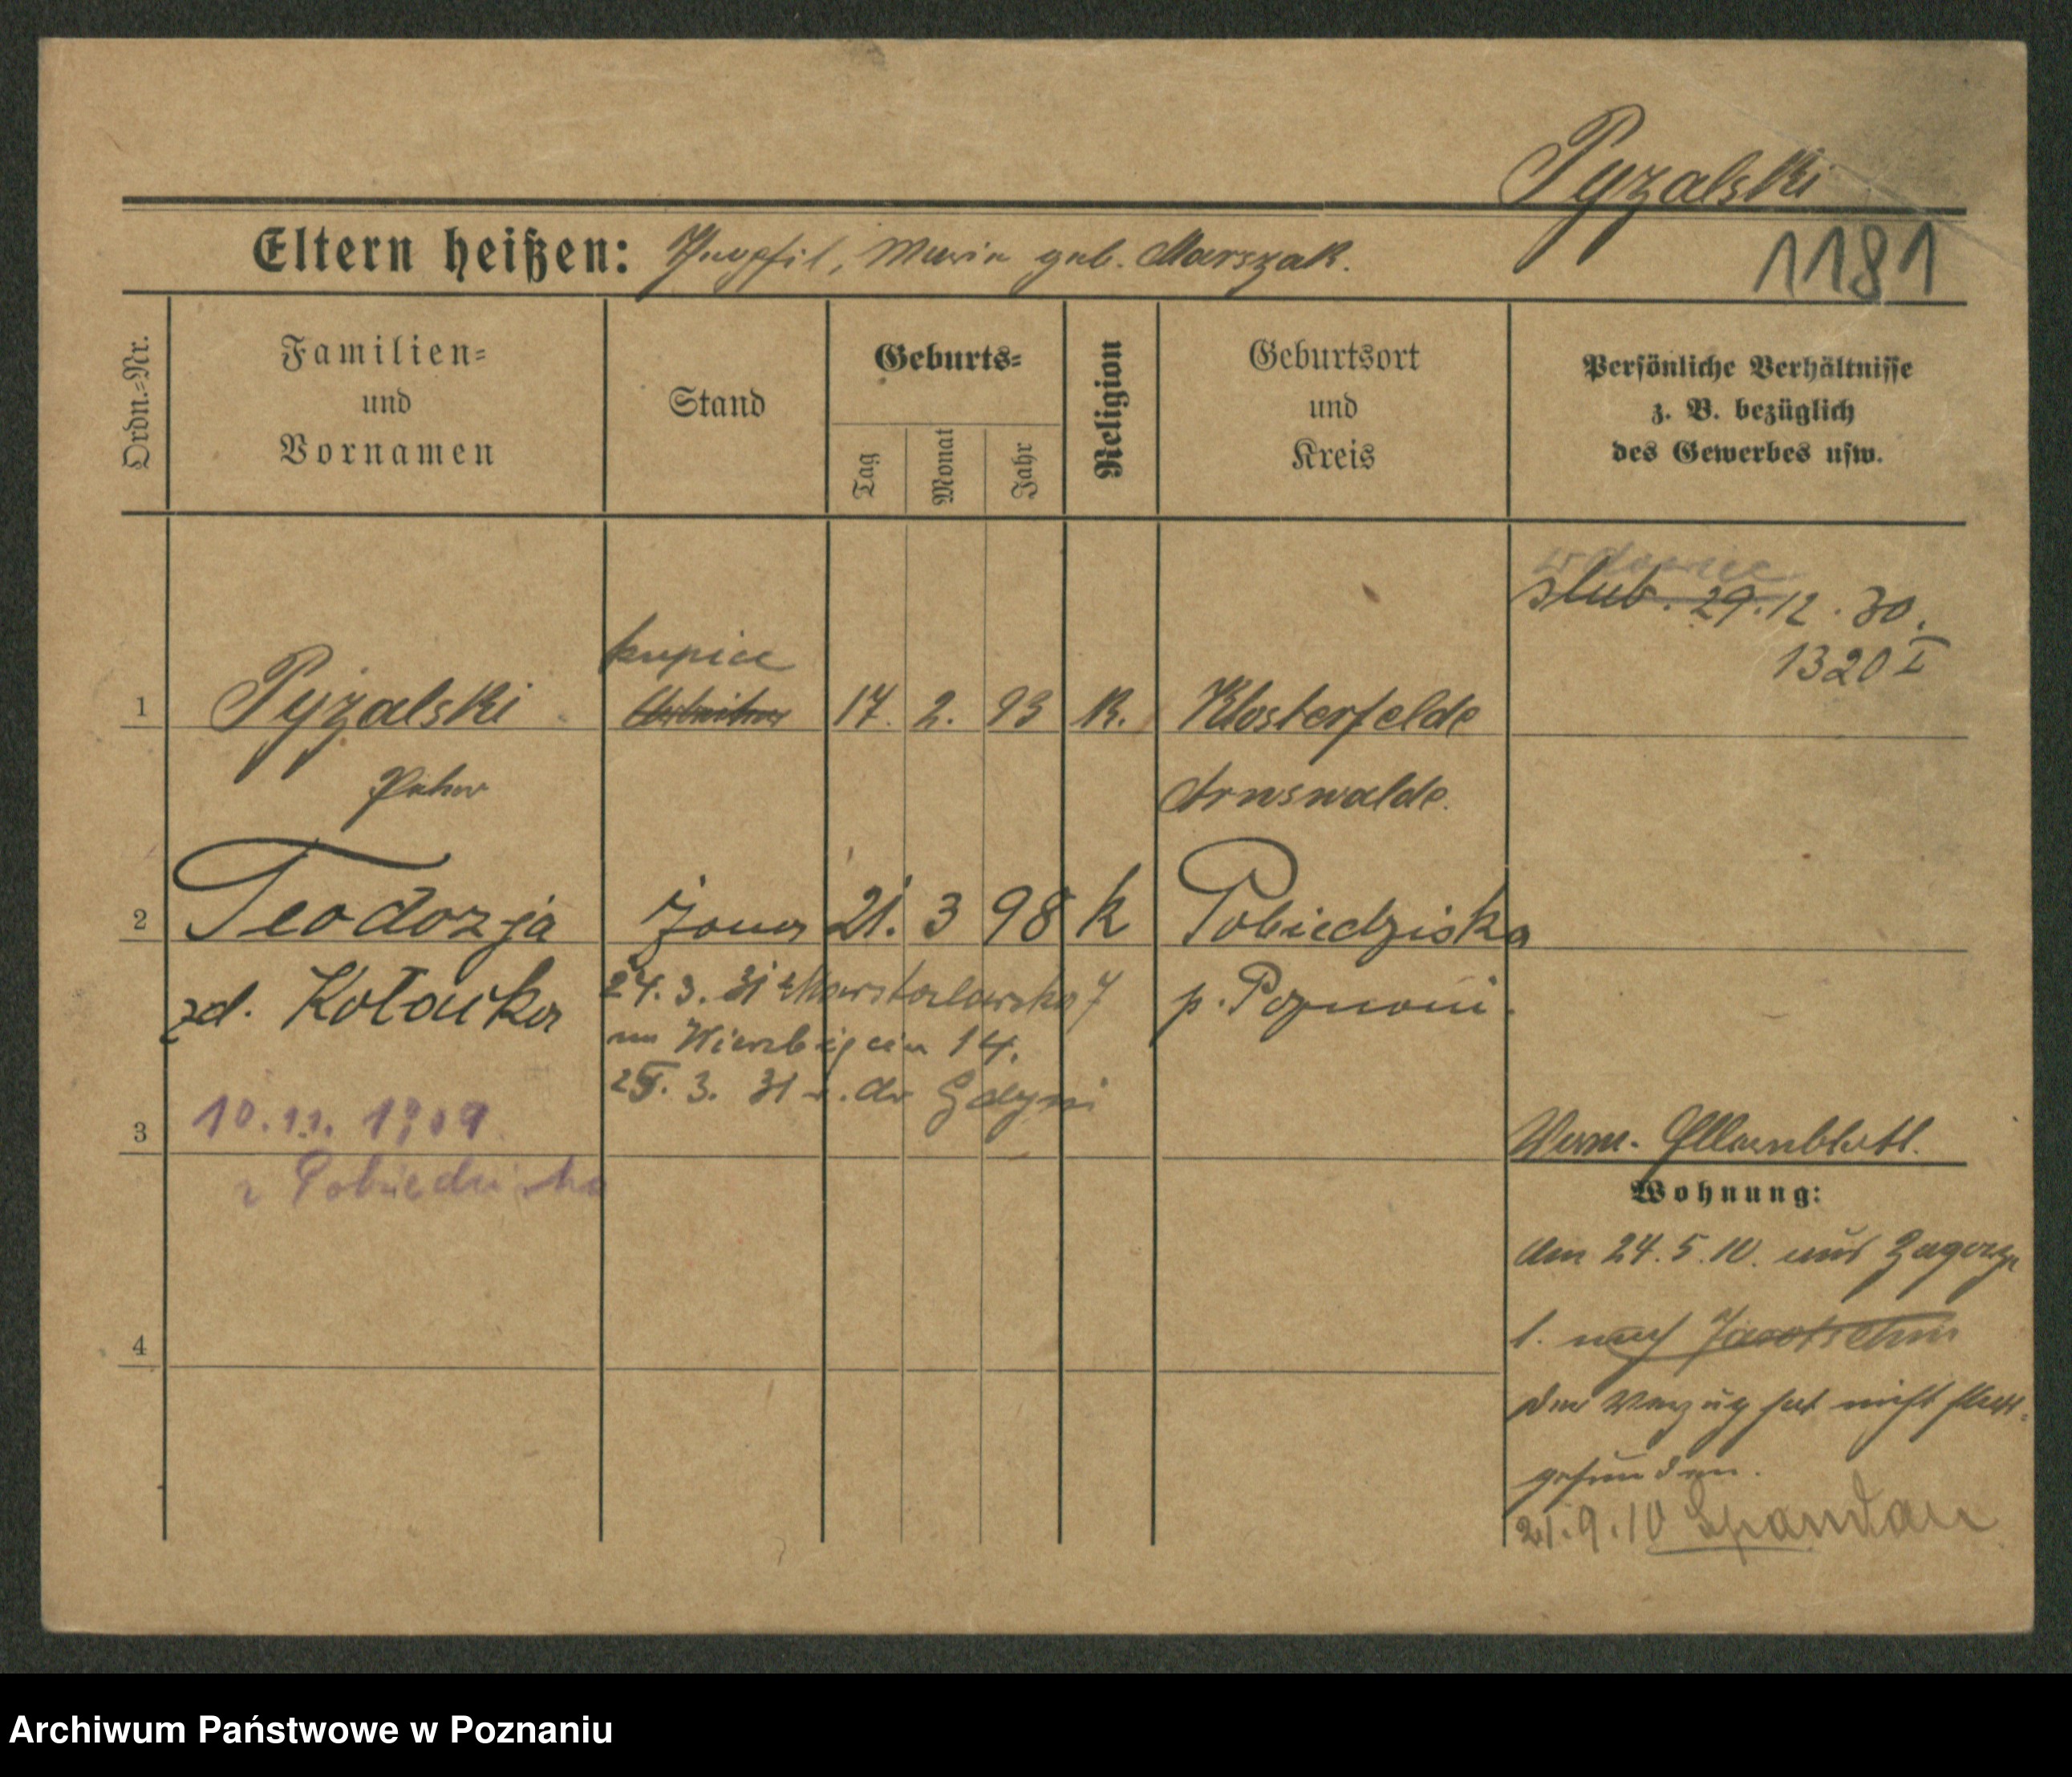 Pyzalski
1181
Eltern heißen: Theofil, Maria geb. Marszak.
Ordn.=Nr.
Familien=
und
Vornamen
Stand
Geburts=
Tag
Monat
Jahr
Religion
Geburtsort
und
Kreis
Persönliche Verhältnisse
z. B. bezüglich
des Gewerbes usw.
ślub. 29.12.30.
1320 I
kupiec
1 Pyżalski Arbeiter 17. 2. 93 K. Klosterfelde
Peter Arnswalde.
2 Teodozja żona 21. 3 98 k Pobiedziska
zd. Kołacka p. Poznań.
24. 3. 31 z Marstalarska 7
na Wierzbięcin 14.
3. 31 do Gdyni
10.11. 1909
z Pobiedziska
3
Wohnung:
Am 24.5.10. aus Zagorze
1. nach Jarotschin
4
Der Verzug hat nicht statt=
gefunden.
21.9.10 Spandau
Archiwum Państwowe w Poznaniu